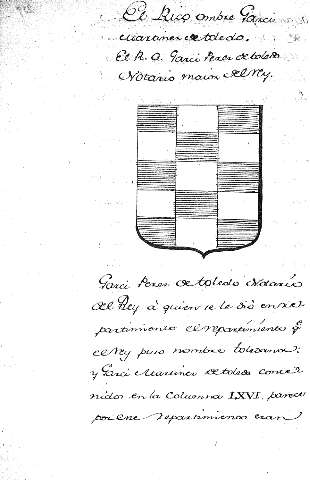 El Rico ombre Garci
Martinez de toledo.
El R. O. Garci Perez de toledo
Notario maior del Rey.
Garci Perez de toledo Notario
del Rey à quien se le dió en re
partimiento el repartimiento q̃
el Rey puso nombre toledana:
y Garci Martinez de toledo conte
nidos en la Columna LXVI. parece
por ese repartimiento eran